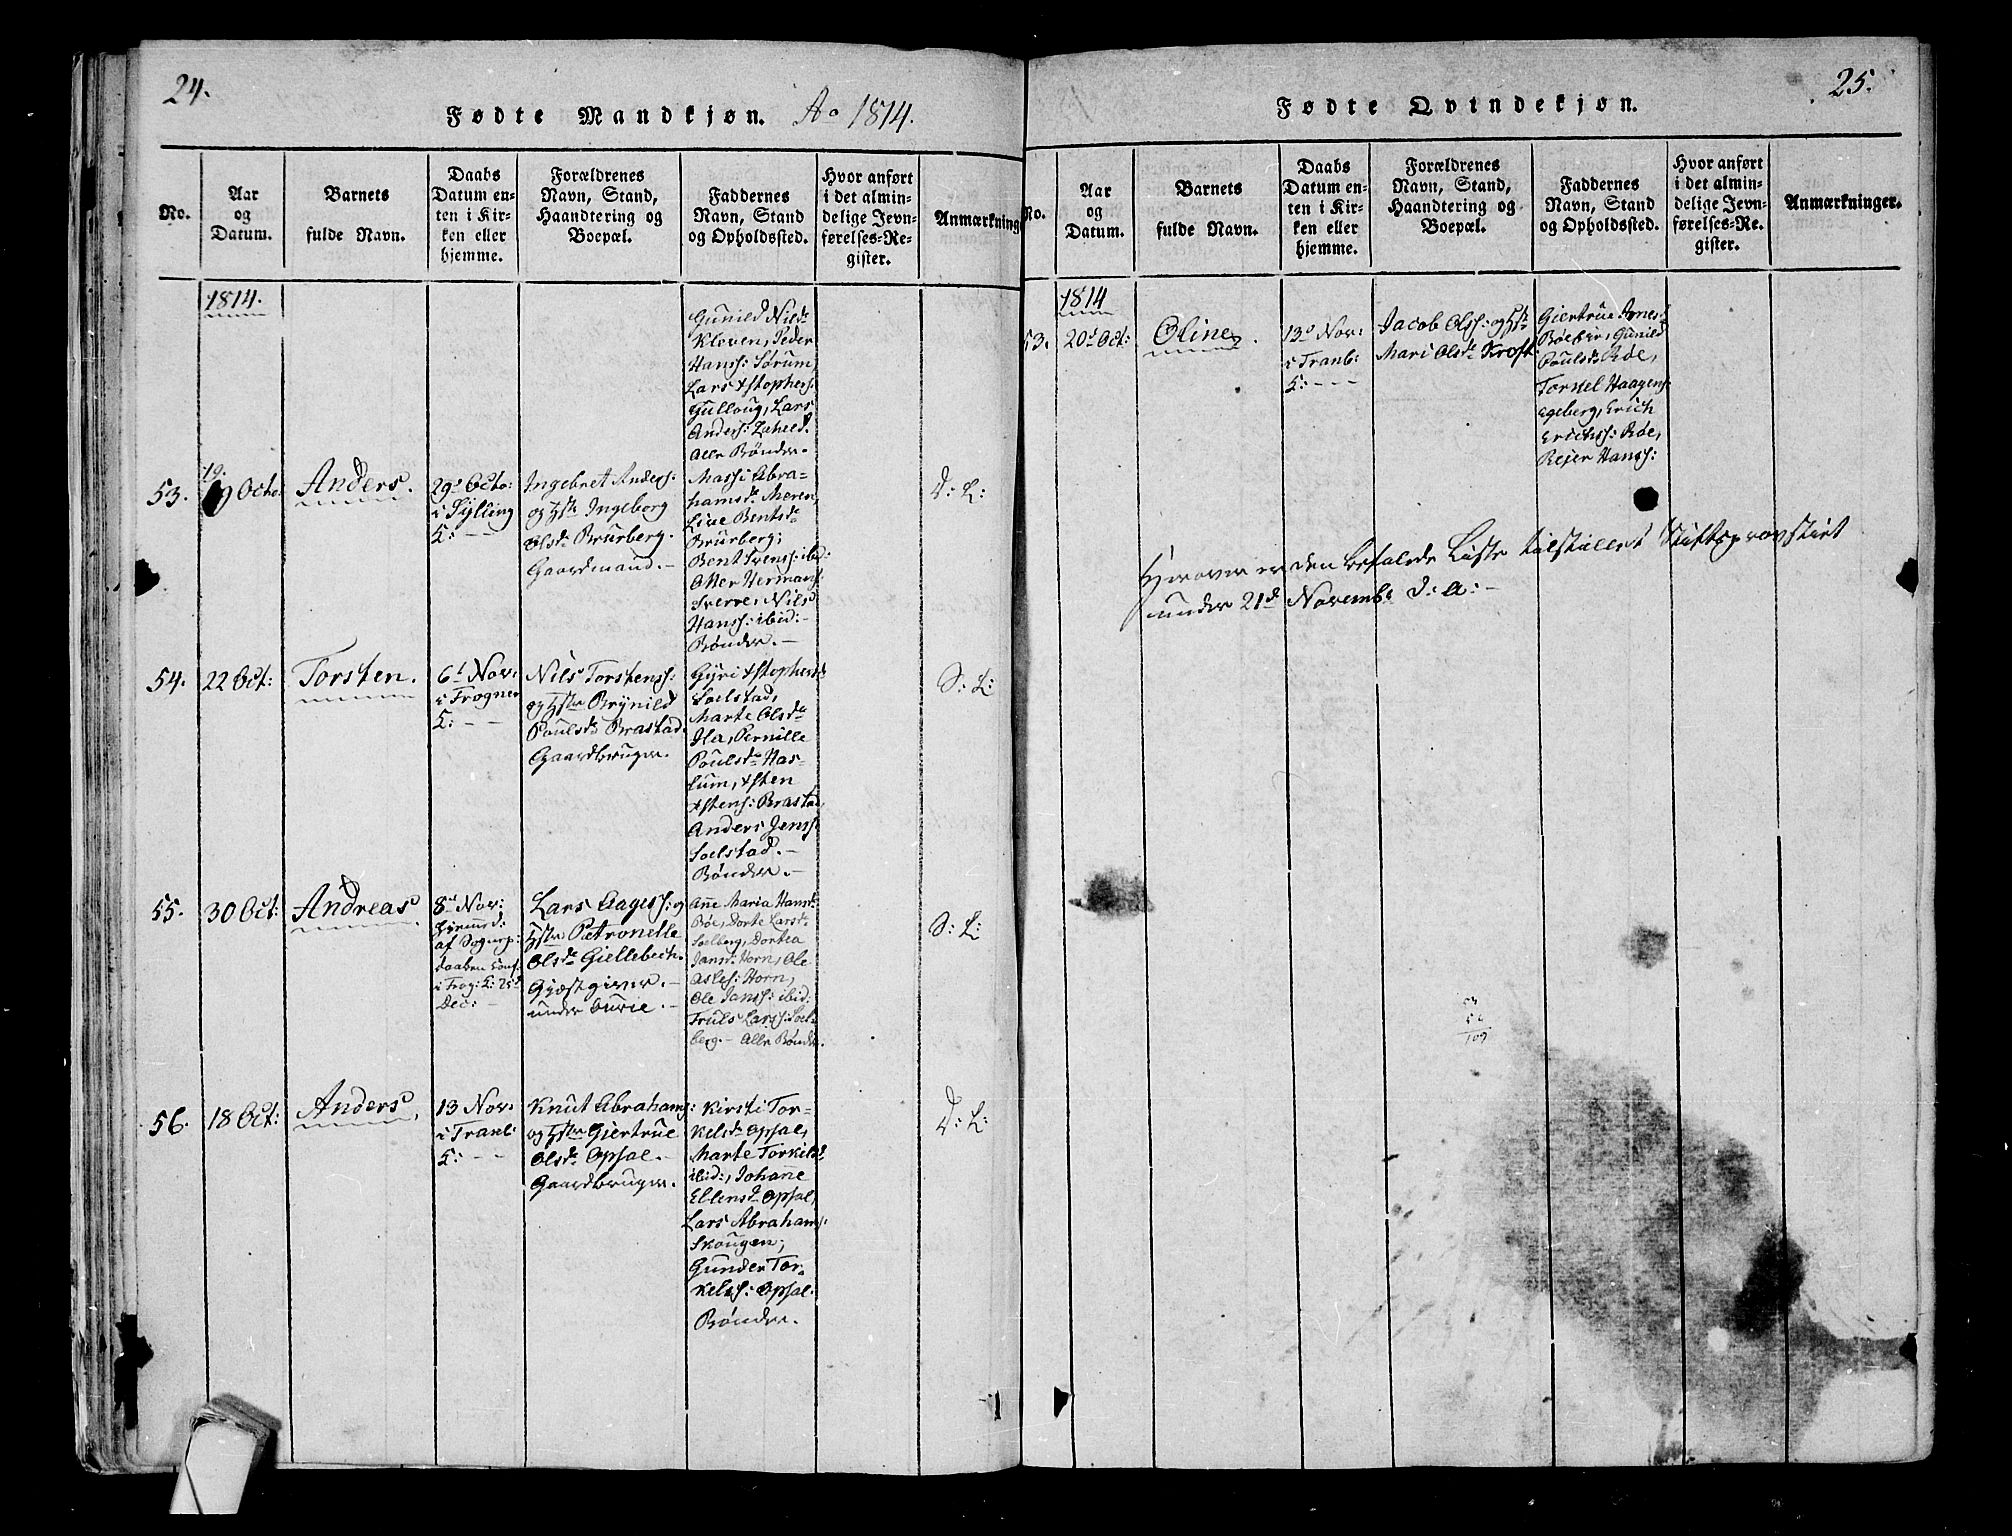 24.
Fødte Mandkjøn. Ao 1814.
No.
Aar
og
Datum.
Barnets
fulde Navn.
Daabs
Datum en-
ten i Kir-
ken eller
hjemme.
Forældrenes
Navn, Stand,
Haandtering og
Boepæl.
Faddernes
Navn, Stand
og Opholdssted.
Hvor anført
i det almin-
delige Jevn-
førelses-Re-
gister.
Anmærkninge
1814.
Gunild Nilsd:
Kleven, Peder
Hanss: Sørum,
Lars Xstophers:
Gulloug, Lars
Anderss: Laheld.
Alle Bønder.
53.
19 Octo:
Anders.
29d Octo:
i Sylling
K: - -
Ingebret Anderss:
og Hstr Ingeborg
Olsd: Brurberg.
Gaardmand.-
Massi Abra-
hamsd: Meren,
Live Bentsd:
Brurberg;
Bent Svenss: ibid:
Atter Hermans:
Sverre, Nils
Hanss: ibid:-
Bønder.-
D: L:
54.
22 Oct:
Torsten.
6d Nov:
i Frogner
K: - -
Nils Torstenss:
og Hstr Brynild
Poulsd: Brastad.
Gaardbruger.
Gyri Xstophersd:
Soelstad,
Marte Olsd:
Ila, Pernille
Poulsd: Has-
lum, Xsten
Xstens: Brastad,
Anders Jenss:
Soelstad.-
Bønder.-
S: L:
55.
30 Oct:
Andreas.
8d Nov:
hjemmed:
af Sognep:
daaben conf:
i Frog: K: 25d
Dec:
Lars Aagess: og
Hstr Petronelle
Olsd: Giellebech.
Giæstgiver.-
under Ourie.-
Ane Maria Hansd:
Bøe, Dorte Larsd:
Soelberg, Dortea
Jansd: Horn, Ole
Asles: Horn,
Ole Janss: ibid:
Truls Larss: Soel-
berg.- Alle Bønder.
S: L:
56.
18 Oct:
Anders.
13 Nov:
i Tranb:
K: - -
Knut Abrahams:
og Hstr Giertrue
Olsd: Opsal.-
Gaardbruger.
Kirsti Tor-
kelsd: Opsal,
Marte Torkelsd:
ibid:, Johanne
Ellensd: Opsal,
Lars Abrahams:
Skougen;
Gunder Tor-
kelss: Opsal.
Bønder.
D: L:
25.
Fødte Qvindekjøn.
No.
Aar
og
Datum.
Barnets
fulde Navn.
Daabs
Datum en-
ten i Kir-
ken eller
hjemme.
Forældrenes
Navn, Stand,
Haandtering og
Boepæl.
Faddernes
Navn, Stand
og Opholdssted.
Hvor anført
i det almin-
delige Jevn-
førelses-Re-
gister.
Anmærkninger.
1814
53.
20d Oct:
Oline.
13d Nov:
i Tranb:
K: - - -
Jacob Olss: og Hstr
Mari Olsd: Kroft.
Giertrue Arnes:
Gunild
Poulsd: Bøe,
Torsel Haagens:
Egeberg, Erich
Erichss: Bøe,
Rejer Hanss:
Herover er den befalede Liste tilstillet Stiftsprovstiet
under 21d Novembr d: a:-
53
56
109